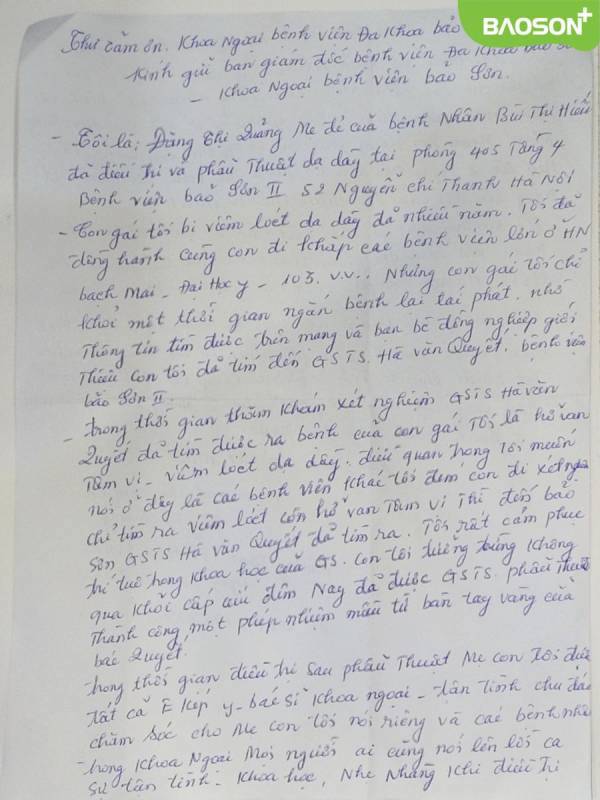 BAOSON+
Thư cảm ơn. Khoa Ngoại bệnh viện Đa Khoa bảo
Kính gửi ban giám đốc bệnh viện Đa Khoa bảo Sơn
- Khoa Ngoại bệnh viện bảo Sơn.
- Tôi là; Đặng Thị Quảng Mẹ đẻ của bệnh Nhân Bùi Thị Hiếu
đã điều trị và phẫu Thuật dạ dày tại phòng 405 Tầng 4
Bệnh viện bảo Sơn II 52 Nguyễn chí Thanh Hà Nội
- Con gái tôi bị viêm loét dạ dày đã nhiều năm. Tôi đã
đồng hành cùng con đi khắp các bệnh viện lớn ở HN
bạch Mai - Đại Học y - 103. v.v... Nhưng con gái tôi chỉ
khỏi một thời gian ngắn bệnh lại tái phát. nhờ
Thông tin tìm được trên mạng và bạn bè đồng nghiệp giới
Thiệu con tôi đã tìm đến GSTS. Hà văn Quyết. bệnh viện
bảo Sơn II.
- trong thời gian thăm khám xét nghiệm GSTS Hà văn
Quyết đã tìm được ra bệnh của con gái Tôi là hở van
Tâm vị - viêm loét dạ dày. điều quan trọng Tôi muốn
nói ở đây là các bệnh viện khác tôi đem con đi xét nghiệm
chỉ tìm ra viêm loét còn hở van Tâm vị Thì đến bảo
Sơn GSTS Hà văn Quyết đã tìm ra. Tôi rất cảm phục
trí tuệ trong khoa học của GS. Con tôi tưởng chừng không
qua khỏi cấp cứu đêm Nay đã được GSTS. phẫu Thuật
Thành công, một phép nhiệm mầu từ bàn tay vàng của
bác Quyết.
trong thời gian điều trị sau phẫu Thuật Mẹ con Tôi được
tất cả Ê kíp y - bác sĩ khoa ngoại - tận tình chu đáo
chăm sóc cho Mẹ con tôi nói riêng và các bệnh nhân
trong khoa Ngoại Mọi người ai cũng nói lên lời ca
sự tận tình - khoa học, Nhẹ Nhàng khi điều Trị